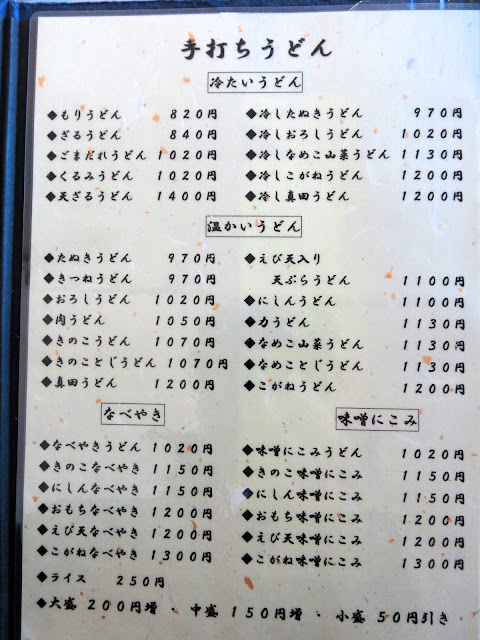 手打ちうどん
冷たいうどん
◆もりうどん 820円
◆ざるうどん 840円
◆ごまだれうどん 1020円
◆くるみうどん 1020円
◆天ざるうどん 1400円
◆冷したぬきうどん 970円
◆冷しおろしうどん 1020円
◆冷しなめこ山菜うどん 1130円
◆冷しこがねうどん 1200円
◆冷し真田うどん 1200円
温かいうどん
◆たぬきうどん 970円
◆きつねうどん 970円
◆おろしうどん 1020円
◆肉うどん 1050円
◆きのこうどん 1070円
◆きのことじうどん 1070円
◆真田うどん 1200円
◆えび天入り
天ぷらうどん 1100円
◆にしんうどん 1100円
◆力うどん 1130円
◆なめこ山菜うどん 1130円
◆なめことじうどん 1130円
◆こがねうどん 1200円
なべやき
◆なべやきうどん 1020円
◆きのこなべやき 1150円
◆にしんなべやき 1150円
◆おもちなべやき 1200円
◆えび天なべやき 1200円
◆こがねなべやき 1300円
味噌にこみ
◆味噌にこみうどん 1020円
◆きのこ味噌にこみ 1150円
◆にしん味噌にこみ 1150円
◆おもち味噌にこみ 1200円
◆えび天味噌にこみ 1200円
◆こがね味噌にこみ 1300円
◆ライス 250円
◆大盛 200円増 ・ 中盛 150円増 ・ 小盛 50円引き